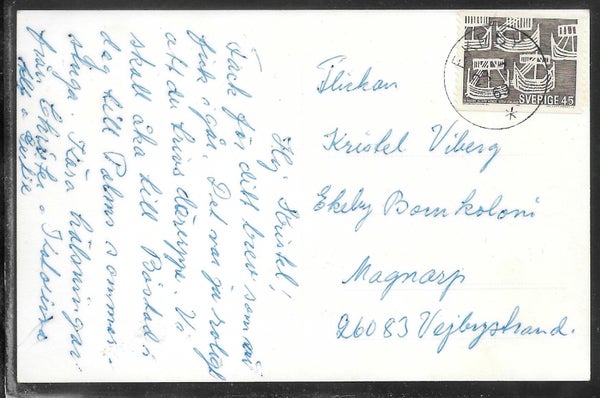 Hej Kristel!
Tack för ditt brev som vi
fick i går. Det var ju roligt
att du trivs däruppe. Vi
skall åka till Båstad i
dag till Palms sommar-
stuga. Kära hälsningar
från Christer o
SVERIGE 45
Flickan
Kristel Viberg
Ekeby Barnkoloni
Magnarp
26083 Vejbystrand.